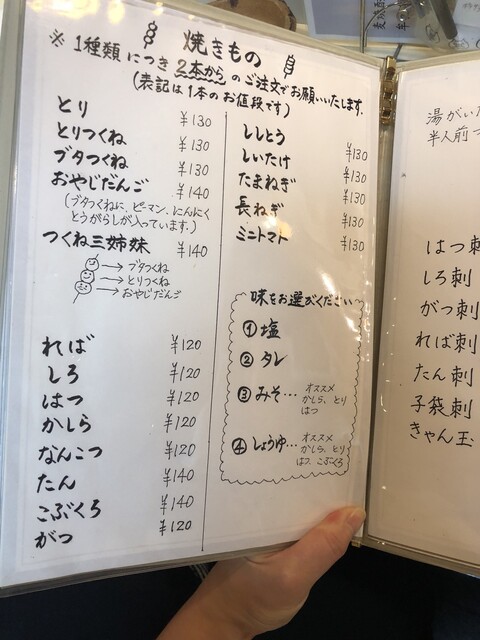 焼きもの
※1種類につき2本からのご注文でお願いいたします.
(表記は1本のお値段です)
とり ¥130
とりつくね ¥130
ブタつくね ¥130
おやじだんご ¥140
(ブタつくねに、ピーマン、にんにく
とうがらしが入っています.)
つくね三姉妹 ¥140
ブタつくね
とりつくね
おやじだんご
れば ¥120
しろ ¥120
はつ ¥120
かしら ¥120
なんこつ ¥120
たん ¥140
こぶくろ ¥140
がつ ¥120
ししとう ¥130
しいたけ ¥130
たまねぎ ¥130
長ねぎ ¥130
ミニトマト ¥130
味をお選びください
①塩
②タレ
③みそ…オススメ
かしら、とり
はつ
④しょうゆ…オススメ
かしら、とり
はつ、こぶくろ
湯がいた
半人前
はつ刺
しろ刺
がつ刺
れば刺
たん刺
子袋刺
きゃん玉